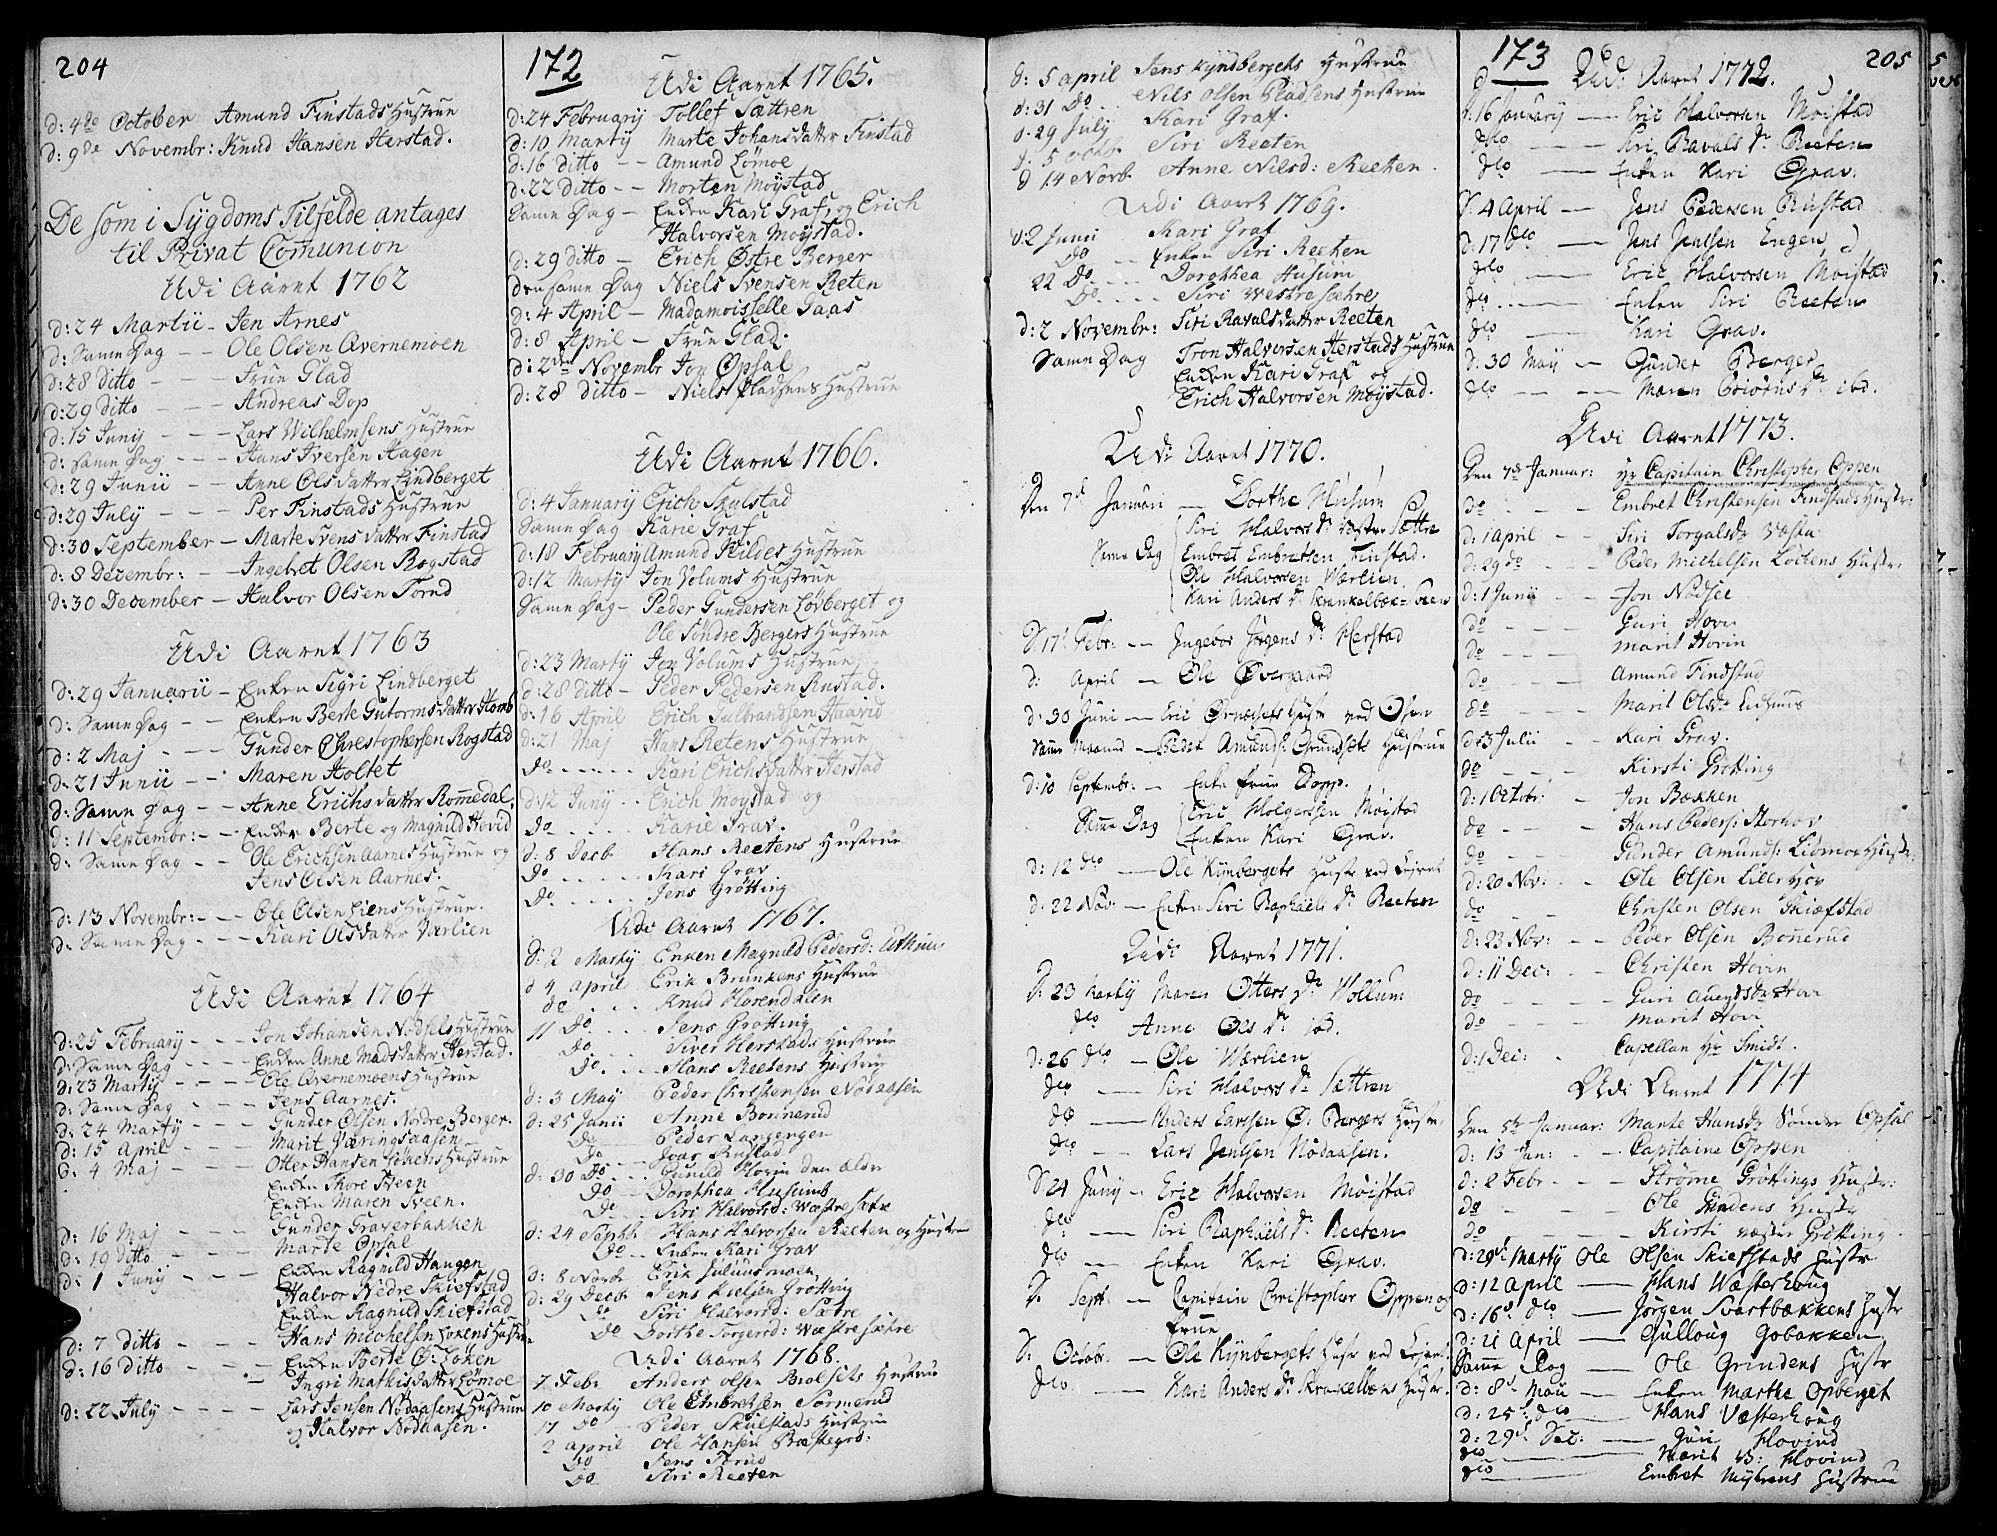 204
d: 4de October Amund Finstads Hustrue
d: 9de Novembr: Knud Hansen Herstad.
De som i Sygdoms Tilfelde antages
til Privat Comunion
Udi Aaret 1762
d: 24 Martii - Jen Arnes
d: Same Dag - - Ole Olsen Qvernemoen
d: 28 ditto - - - Frue Glad
d: 29 ditto - - - Andreas Dop
d: 15 Junij - - - Lars Wilhelmsens Hustrue
d: Same Dag - - - Hans Iversen Hagen
d: 29 Junii - - Anne Olsdatter Lindberget
d: 29 July - - - Per Finstads Hustrue
d: 30 September - Marte Svensdatter Finstad
d: 8 Dezembr: - - Ingebret Olsen Rogstad
d: 30 December - Halvor Olsen Torud
Udi Aaret 1763
d: 29 Januarii - Enken Sigri Lindberget
d: Same Dag - - Enken Berte Gutormsdatter Homb
d: 2 Maj - - - Gunder Christophersen Rogstad
d: 21 Junii - - Maren Holtet
d: Same Dag - - Anne Erichsdatter Romedal.
d: 11 Septembr: - - Enken Berte og Magnild Hovid
d: Same Dag - - Ole Erichsen Aarnes Hustrue og
Jens Olsen Aarnes.
d: 13 Novembr: - - - Ole Olsen Liens Hustrue.
d: Same Dag - - - Kari Olsdatter Værlien
Udi Aaret 1764
d: 25 February - - - Jon Johansen Nodsets Hustrue
d: Same Dag - - - Enken Anne Madsdatter Herstad.
d: 23 Martij - - - - Ole Qvernemoens Hustrue
d: Same Dag - - - Jens Aarnes.
d: 24 Marty - - - Gunder Olsen Nordre Berger.
d: 15 April - - - Marit Væringsaasen
d: 4 Maj - - - Otter Hansen Hustrue
Enken Thore Sveen
Enken Maren Sveen.
d: 16 Maj - - - Gunder Graverbakken
d: 19 ditto - - - Marte Opsal
d: 1 Junij - - - Enken Ragnild Haugen
Halvor Nedre Skiefstad
Enken Ragnild Skiefstad
d: 7 ditto - - - Hans Michelsen Løkens Hustrue
d: 16 ditto - - - Enken Berte Ø: Løken
Ingri Mathisdatter Lømoe
d: 22 July - - - - Lars Jensen Nodaasens Hustrue
og Halvor Nodaasen.
172
Udi Aaret 1765.
d: 24 Februarij Tollef Sættren
d: 10 Martij Marte Johansdatter Finstad
d: 16 ditto - - Amund Lømoe
d: 22 ditto - - Morten Moystad
Same Dag - Enken Kari Graf, og Erich
Halvorsen Moystad.
d: 29 ditto - Erich Østre Berger
den same Dag Niels Svensen Reten
d: 4 April - Madamoisselle Gaas
d: 8 April - Frue Glad.
d: 2den Novembr Jon Opsal
d: 28 ditto - Niels Pladsens Hustrue
Udi Aaret 1766.
d: 4 January Erich Skulstad
Same Dag Karie Graf
d: 18 February Amund Kildes Hustrue
d: 12 Marty Jon Volums Hustrue
Same Dag - Peder Gundersen Lovberget og
Ole Søndre Bergers Hustrue
d: 23 Marty Jon Volums Hustrue
d: 28 ditto - Peder Pedersen Rustad.
d: 16 April Erich Gulbrandsen Haarid
d: 21 Maj Hans Retens Hustrue
Do - - - - - Kari Erichsdatter Herstad
d: 12 Junij - - Erich Moystad og
Do - - - - Karie Grav.
d: 8 Decb Hans Reetens Hustrue
Do - - - - - Kari Grav
Do - - - - - Jens Grøtting
Udi Aaret 1767.
d: 2 Marty Enken Magnild Pedersd:
d 4 April Erik Brunkens Hustrue
do - - - Knud Horendalen
11 Do - - - - Jens Grøtting
Do - - - Siver Herstads Hustrue
Do - - - Hans Reetens Hustrue
d: 3 May Peder Christensen Nodaasen
d: 25 Junii - Anne Bonnerud
Do - - Peder Langengen
Do - - - Joar Rustad
d: 30 Do - - - Gunild Hovin den ældre
Do - Dorothea Husums
Do - - Siri Halvorsd: Westresætre
d: 24 Septb Hans Halvorsen Reeten og Hustrue
Do - - Enken Kari Grav
d: 8 Novb Erik Julusmoen
d: 29 Decb Jens Nielsen Grøtting
do Siri Halvorsd: Sætre
Do Dorthe Torgersd: Westresætre
Udi Aaret 1768.
7 Febr Anders Olsen Biolsets Hustrue
10 Marty Ole Embretsen Sørmerud
17 Do - - Peder Skulstads Hustrue
2 April Ole Hansen
Do Jens Torud
Do Siri Reeten
d: 5 April Jens Kyndbergets Hustrue
d: 31 Do - - Nils Olsen Pladsens Hustrue
d. 29 July Kari Graf.
d. 5 octbr Siri Reeten
d 14 Novb Anne Nilsd: Reeten.
Udi Aaret 1769.
d: 2 Junii Kari Graf
Do - - Enken Siri Reeten
22 Do - - - Dorothea Husum
Do - - - - Siri Westre Sætre
d: 2 Novembr: Siri Ravalsdatter Reeten
Same Dag Tron Halvorsen Herstads Hustrue
Enken Kari Graf og
Erich Halvorsen Moystad.
Udi Aaret 1770.
Den 7d Januari - Dorthe Husum
Siri Halvors Dr Vester Sættre
Same Dag Embret Embretsen Finstad.
Ole Halvorsen Værlien.
Kari Anders Dr
D. 17 Febr: - - Ingebor Jørgens Dr Herstad
d: April - Ole Øvergaard
d: 30 Juni - - Eric Ørnæsets Hustr ved Osen
Same Maaned - Peder Amunds: Grundsæts Hustrue
d: 10 Septembr: - Enke Frue Dopp.
Same Dag Eric Holgersen Møistad
Enken Kari Grav.
d: 12 dto - Ole Kynbergets Hustr ved
d: 22 Nov: - Enken Siri Raphaels Dr Reeten
Udi Aaret 1771.
D. 23 Martij Maren Otters Dr Vollum
dto Anne Ols Dr ibd.
d: 26 dto - Ole Værlien
dto - - Siri Halvors Dr Sættren
dto - - Anders Larsen Ø: Bergers Hustr.
dto - - Lars Jensen Nodaasen.
D 24 Junij - Eric Halvorsen Møistad
dto - - Siri Raphaels Dr Reeten
dto - - Enken Kari Grav.
D. Sept: - Capitain Christopher Oppen og
Frue
D. Octobr: - - Ole Kynbergets Hustr ved
dto - - - Kari Anders Dr Hustr.
173
205
Udi Aaret 1772.
d. 16 Januarij - Eric Halvorsen Møistad
dto - - - Siri Ravals Dr Reeten
dto - - - Enken Kari Grav.
D. 4 April - - Jens Pedersen Rustad
d: 17 dto - - Jens Jensen Engen
dto - - - Eric Halvorsen Møistad
dto - - - Enken Siri Reeten
dto - - - Kari Grav.
d. 30 Maij - - Gunder Berger
dto - - - Maren Dr ibd.
Udi Aaret 1773.
Den 7de Januar: Hr Capitain Christopher Oppen
do - - Embret Christensen Findstads Hustr:
d: 1 April - - Siri Torgalsdr Væsta
d: 29 do - - - Peder Michelsen Løckens Hustr:
d: 1 Junii - - - Jon Nodsee
do - - - Guri Hovin
do - - - Marit Hovin
do - - - Amund Findstad
do - - - Marit Olsdr
d: 3 Julii - - Kari Grav.
do - - - Kirsti Grøtting
d: 1 Octobr: - Jon Bækken
do - - - Hans Peders: Storhov
do - - - Gunder Amunds: Liømoe Hustr:
d: 20 Nov: - - Ole Olsen Lillehov
do - - - Christen Olsen Skiefstad
d: 23 Nov: - - Peder Olsen Bonnerud
d: 11 Dec: - - Christen Hovin
do - - - Guri Hovi
do - - - Marit Hovi
d: 1 Dec: - Capellan Hr Smidt.
Udi Aaret 1774
Den 5te Januar: Marte Hansdr Sønder Opsal
d: 13 Jan: - - Capitaine Oppen
d: 2 Febr - - - Strømme Grøttings Hustr:
do - - - Ole Grindens Hustr
do - - - Kirsti væster Grøtting.
d: 29d Marty Ole Olsen Skiefstads Hustr
d: 12 April - Hans Wæsterhoug
d: 16d dto - Jørgen Svartbækkens Hustr
d: 21 April - Gulloug Gobakken
Samme Dag - Ole Grindens Hustr
d: 8d Maii - Enken Marthe Opberget
d: 25d dto - Hans Væsterhoug
d: 29d Dec: - Guri Hovind
dto - Marit Hovind
dto - Embret Myhrens Hustrue